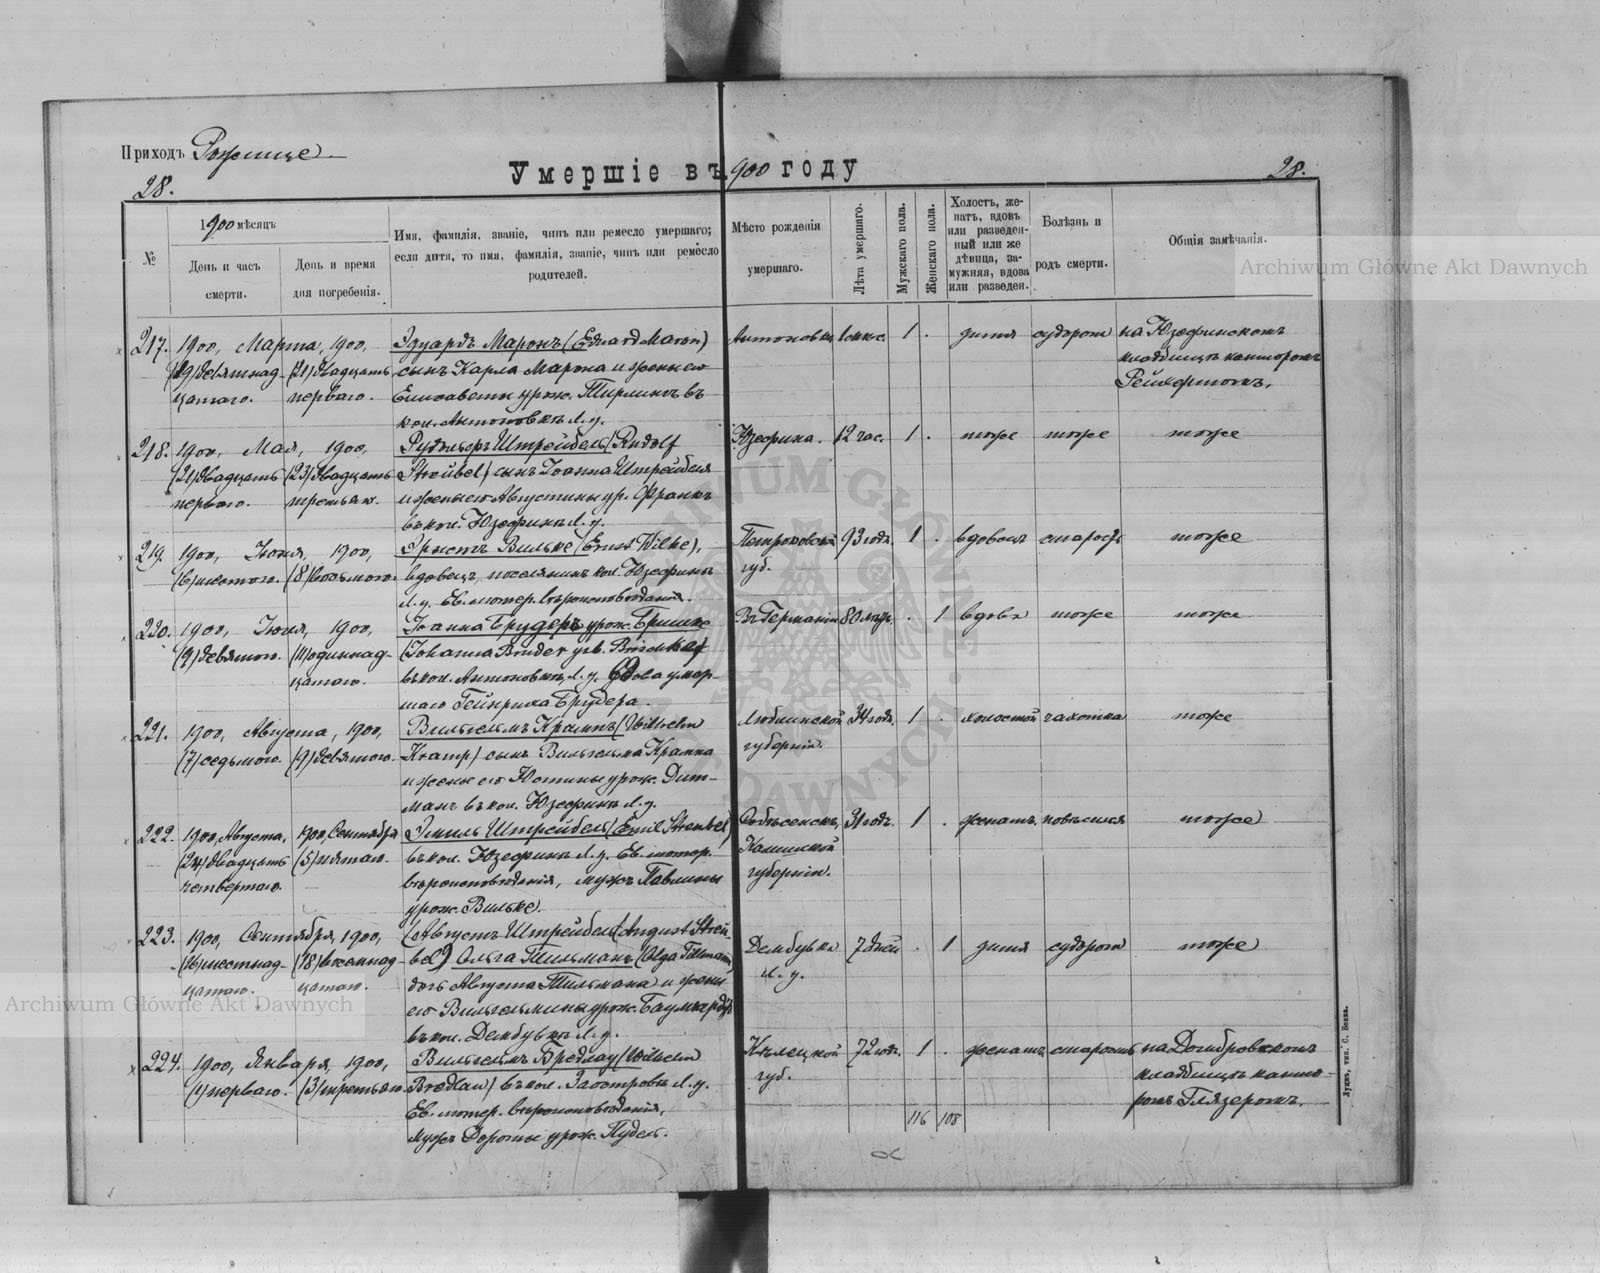 Приходъ Рожище.
Умершіе въ 1900 году
28.
28.
№
1900 мѣсяцъ
День и часъ смерти.
День и время дня погребенія.
Имя, фамилія, званіе, чинъ или ремесло умершаго;
если дитя, то имя, фамилія, званіе, чинъ или ремесло
родителей.
Мѣсто рожденія
умершаго.
Лѣта умершаго.
Мужскаго пола.
Женскаго пола.
Холостъ, же-
натъ, вдовъ
или разведен-
ный или же
дѣвица, за-
мужняя, вдова
или разведен.
Болѣзнь и
родъ смерти.
Общія замѣчанія.
217. 1900, Марта, 1900, Эдуардъ Маронъ (Eduard Maron) Антоновка 1 . дитя судороги на Юзефинскомъ
(19) девятнад- (21) двадцать сынъ Карла Марона и жены его кладбищѣ канторомъ
цатаго. перваго. Елисаветы урож. Тирлингъ въ
кол. Антоновкѣ Л. у.
218. 1900, Мая, 1900, Рудольфъ Штрейбель (Rudolf Юзефина. 12 час. 1 . тоже тоже тоже
(21) двадцать (23) двадцать Streibel) сынъ Іоанна Штрейбеля
перваго. третьяго. и жены его Августины ур. Франкъ
въ кол. Юзефинѣ Л. у.
219. 1900, Іюня, 1900, Эрнстъ Вильке (Ernst Wilke), Петроковской 93 года. 1 . вдовецъ старость тоже
(6) шестого. (8) восьмого. вдовецъ, поселянинъ кол. Юзефинъ губ.
Л. у. Ев. лютер. вѣроисповѣданія.
220. 1900, Іюня, 1900, Іоанна Брудеръ урож. Въ Германіи 80 лѣтъ. . 1 вдова тоже тоже
(9) девятого. (11) одиннад- (Johanna Bruder geb.
цатаго. въ кол. Антоновкѣ, Л. у. Вдова умер-
шаго Гейнриха Брудера.
221. 1900, Августа, 1900, Вильгельмъ Крампъ (Wilhelm Люблинской 34 года. 1 . холостой чахотка тоже
(7) седьмого. (9) девятого. Kramp) сынъ Вильгельма Крампа губерніи.
и жены его Юстины урож. Дит-
манъ въ кол. Юзефинѣ Л. у.
222. 1900, Августа, 1900, Сентября Эмиль Штрейбель (Emil Streibel) 31 годъ. 1 . женатъ повѣсился тоже
(24) двадцать (5) пятаго. въ кол. Юзефинѣ Л. у. Ев. лютер. Калишской
четвертаго. вѣроисповѣданія, мужъ Павлины губерніи.
урож. Вильке.
223. 1900, Сентября, 1900, (Августъ Штрейбель (August Strei- Дембувка 7 дней . 1 дитя судороги тоже
(16) шестнад- (18) восемнад- bel) Ольга Тильманъ (Olga Tillmann) Л. у.
цатаго. цатаго. дочь Августа Тильмана и жены
его Вильгельмины урож. Баумгардтъ
въ кол. Дембувкѣ Л. у.
224. 1900, Января, 1900, Вильгельмъ Бредлау (Wilhelm Кѣлецкой 72 года. 1 . женатъ старость на Домбровскомъ
(1) перваго. (3) третьяго. Bredlau) въ кол. Л. у. губ. кладбищѣ канто-
Ев. лютер. вѣроисповѣданія, ромъ Глязеромъ.
мужъ Дороты урож. Пудель.
116 108
Луцкъ, тип. С. Бокка.
Archiwum Główne Akt Dawnych
Archiwum Główne Akt Dawnych
ARCHIWUM GŁÓWNE AKT DAWNYCH